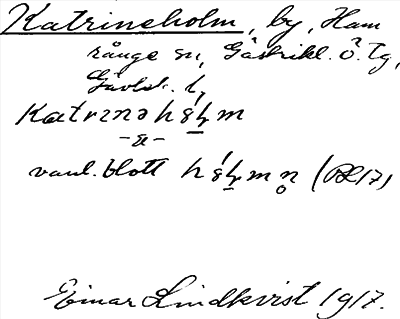 Katrineholm, by, Ham
rånge sn, Gästrikl. ö. tg,
Gävleb. l,
Katrinə hå̤ɭm
-a̤-
vanl. blott hå̤ɭmn̥ (BL17)
Einar Lindkvist 1917.